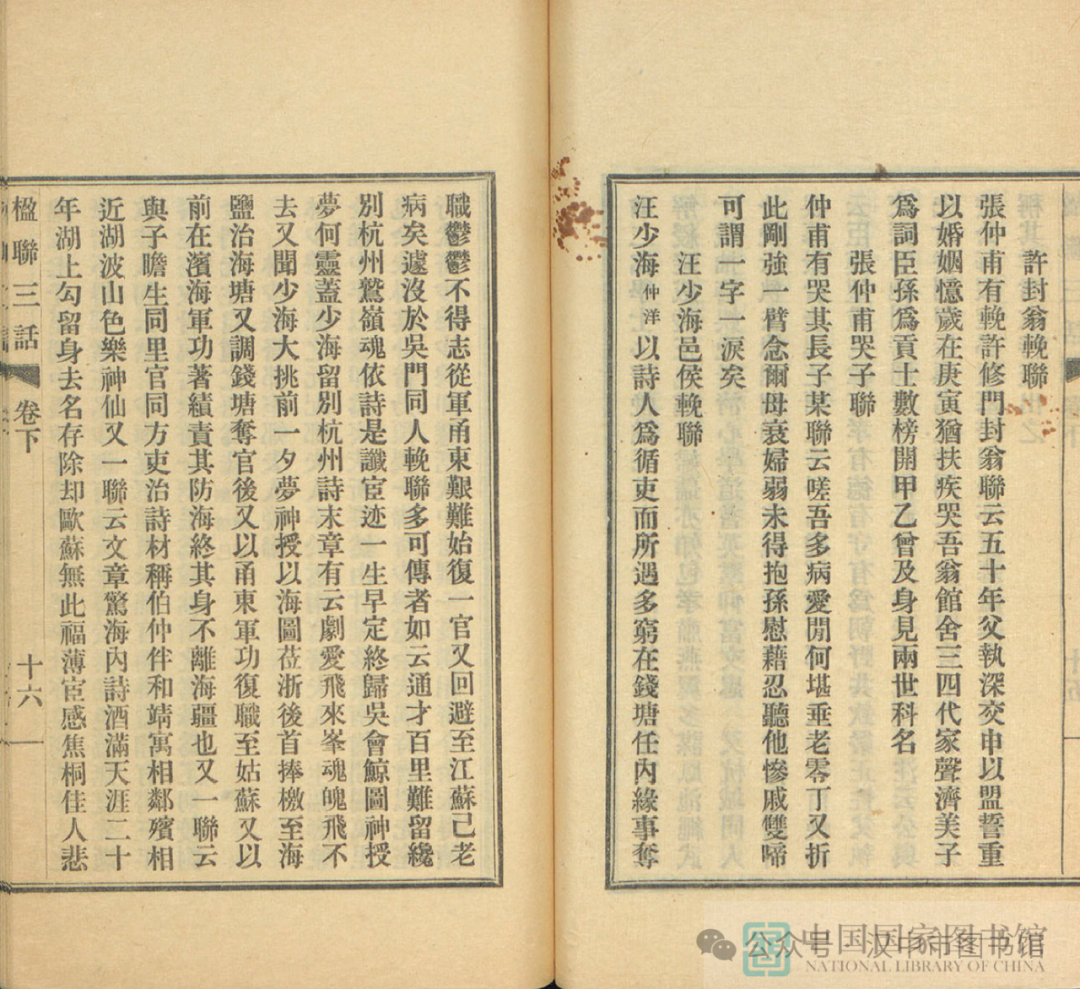 許封翁輓聯
張仲甫有輓許修門封翁聯云五十年父執深交申以盟誓重
以婚姻憶歲在庚寅猶扶疾哭吾翁館舍三四代家聲濟美子
爲詞臣孫爲貢士數榜開甲乙曾及身見兩世科名
張仲甫哭子聯
仲甫有哭其長子某聯云嗟吾多病愛閒何堪垂老零丁又折
此剛強一臂念爾母衰婦弱未得抱孫慰藉忍聽他慘戚雙啼
可謂一字一淚矣
汪少海邑侯輓聯
汪少海仲洋以詩人爲循吏而所遇多窮在錢塘任內緣事奪
職鬱鬱不得志從軍甬東艱難始復一官又回避至江蘇己老
病矣遽沒於吳門同人輓聯多可傳者如云通才百里難留纔
別杭州鷲嶺魂依詩是讖宦迹一生早定終歸吳會鯨圖神授
夢何靈蓋少海留別杭州詩末章有云劇愛飛來峯魂魄飛不
去又聞少海大挑前一夕夢神授以海圖莅浙後首捧檄至海
鹽治海塘又調錢塘奪官後又以甬東軍功復職至姑蘇又以
前在濱海軍功著績責其防海終其身不離海疆也又一聯云
與子瞻生同里官同方吏治詩材稱伯仲伴和靖寓相鄰殯相
近湖波山色樂神仙又一聯云文章驚海內詩酒滿天涯二十
年湖上勾留身去名存除却歐蘇無此福薄宦感焦桐佳人悲
楹聯三話 卷下 十六
公众号 汉中市图书馆
中国国家图书馆
NATIONAL LIBRARY OF CHINA